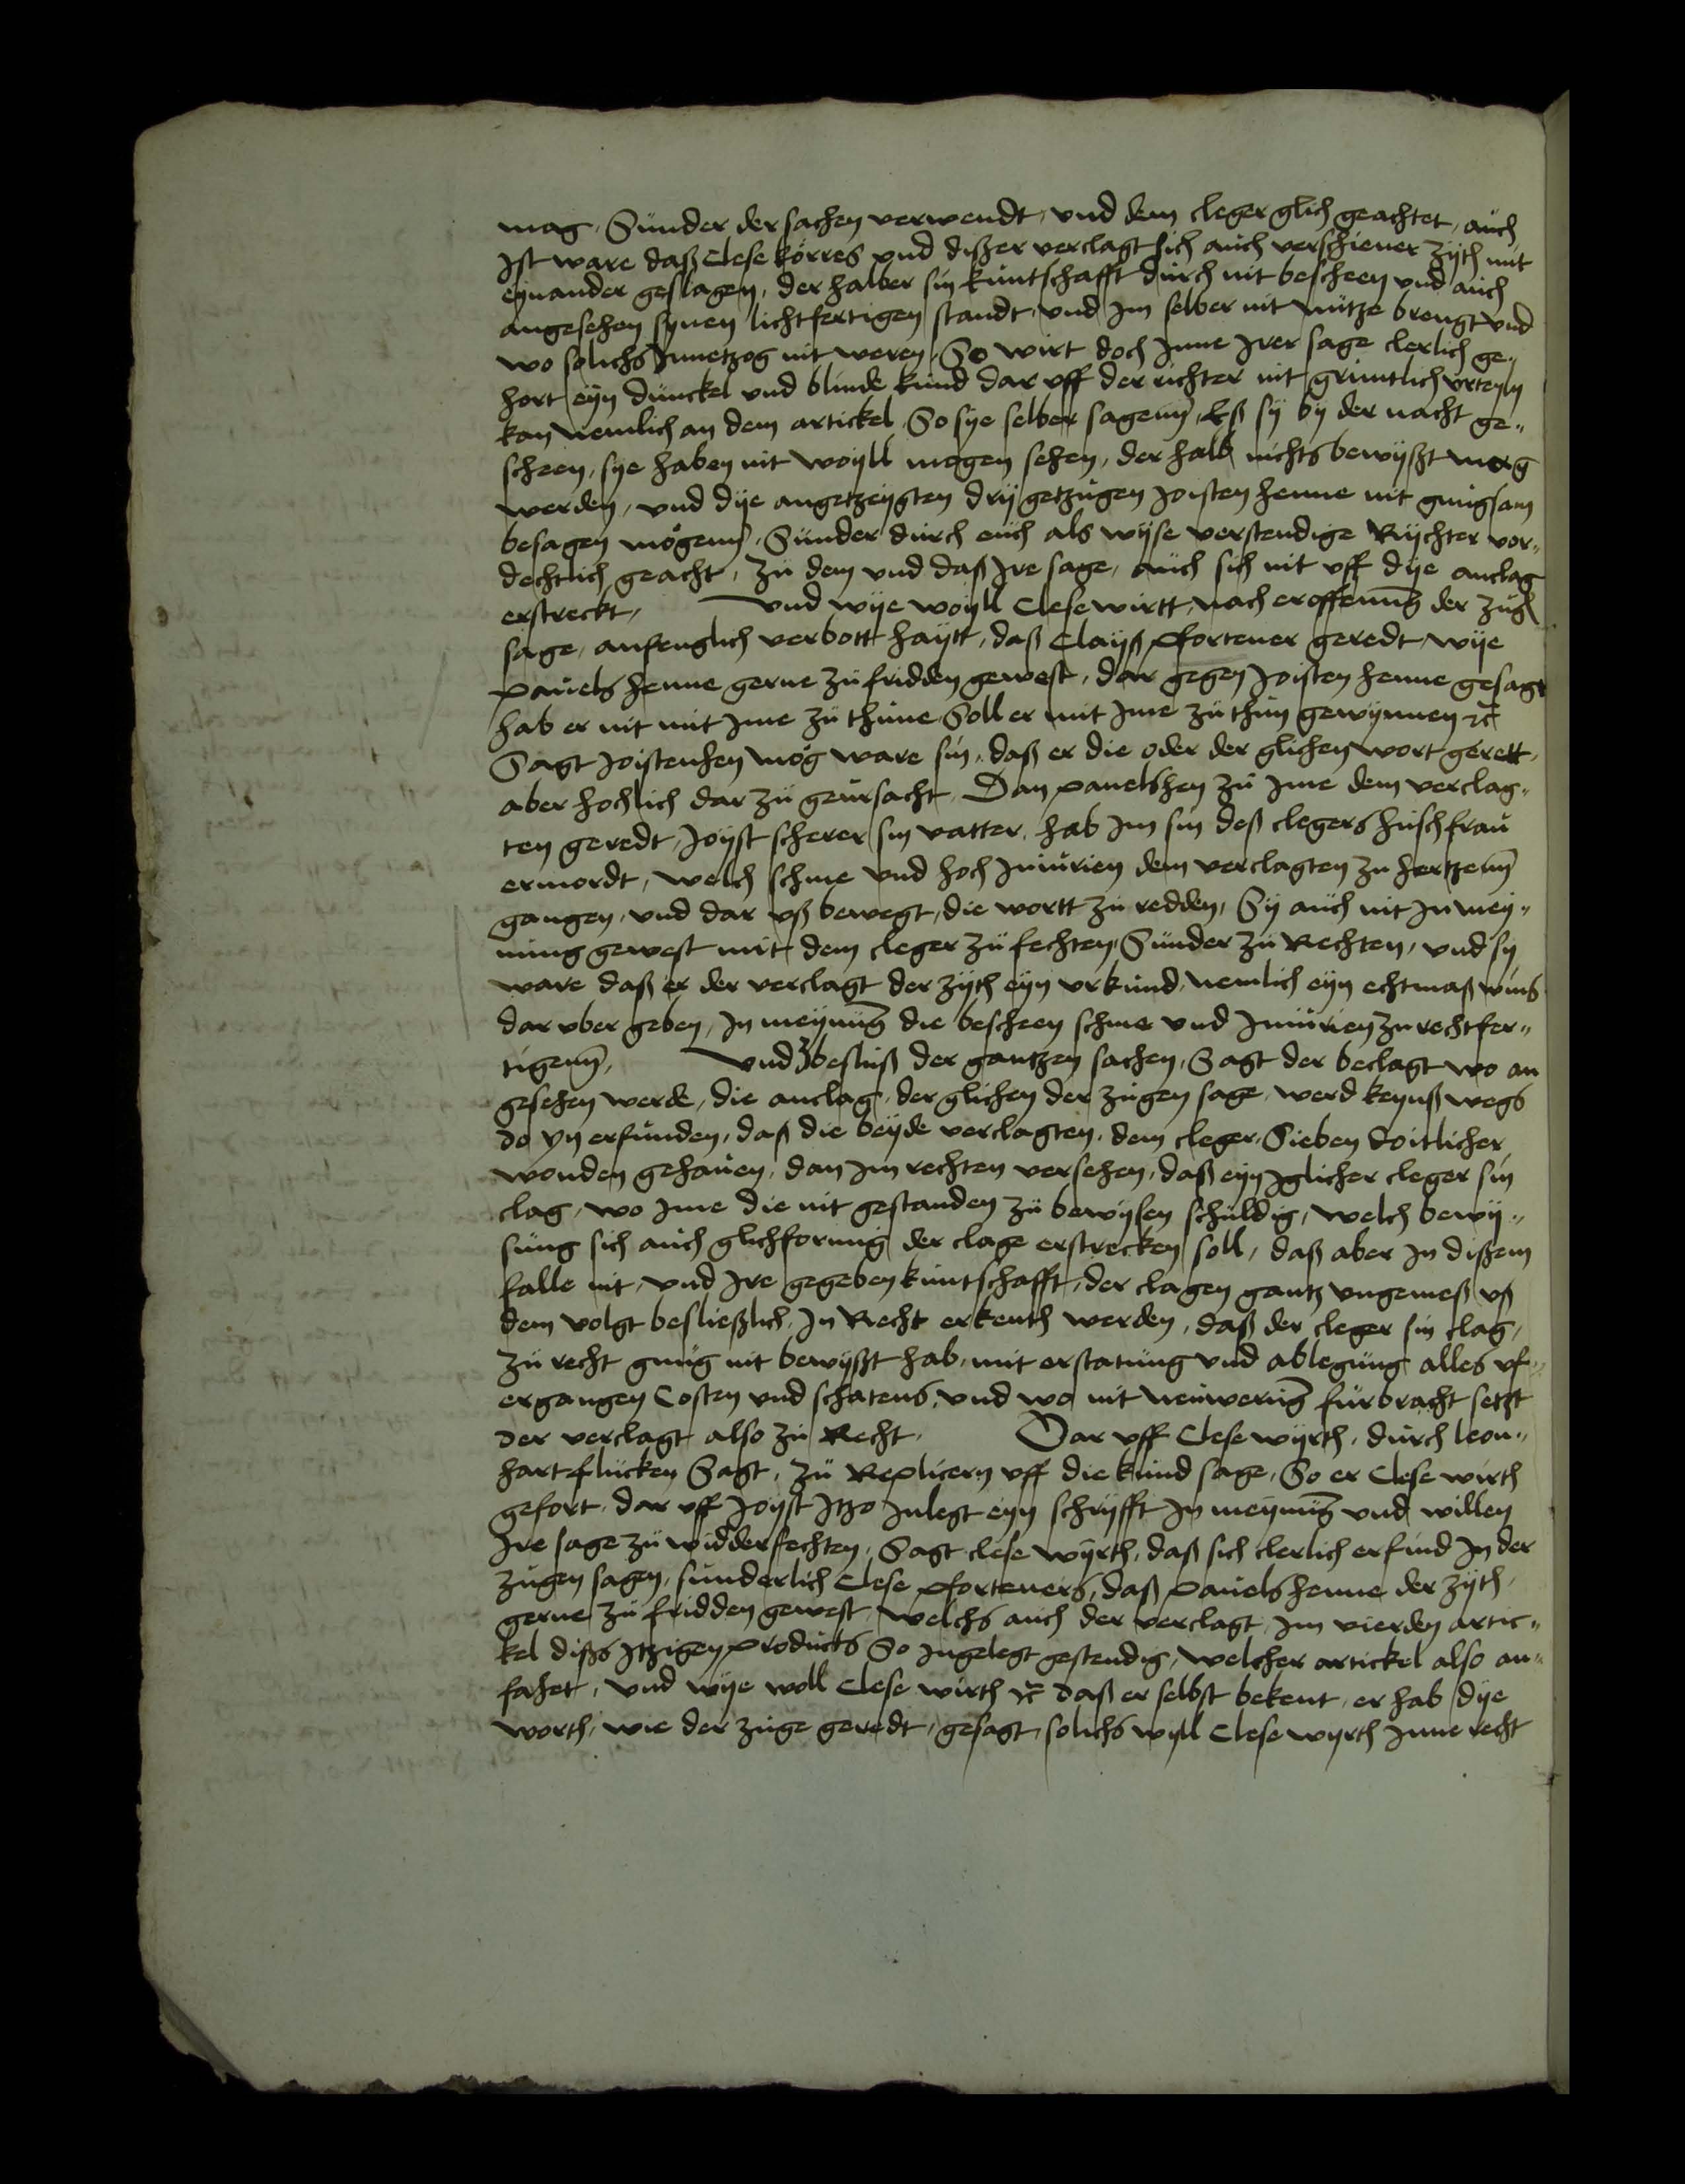 mag, Sunder der sachen verwendt, vnd dem cleger glich geachtet, auch
Ist ware daß Clese korres vnd dißer verclagt sich auch verschiener zyth mit
eynander geslagen, der halber sin kuntschafft durch nit bescheen vnd auch
angesehen synen lichtfertigen standt, vnd Im selber nit nutze brengt vnd
wo solichs Innetzog nit weren, So wirt doch Inne Irer sage clerlich ge„
hort eyn dunckel vnd blinde kund dar uff der richter nit gruntlich vrteyln
kan nemlich an dem artickel So sye selber sagenn, Eß sy by der nacht ge„
scheen, sye haben nit woyll mogen sehen, der halb nichts bewyßt mag
werden, vnd dye angetzeygten dry getzugen Joisten henne nit gnugsam
besagen mogenn, Sunder durch euch als wyse verstendige Rychter vor„
dechtlich geacht, zu dem vnd daß Ire sage, auch sich nit uff dye anclag
erstreckt, vnd wye woyll Clese wirtt, nach eroffenung der zug
sage, anfenglich verbott haytt, daß Clayß pfortener geredt, wye
pauels henne gerne zu fridden gewest, dar gegen Joisten henne gesagt
hab er nit mit Ime zu thune, Soll er mit Ime zu thun gewynnen ꝛc̃
Sagt Joistenhen mog ware sin, daß er die oder der glichen wort gerett,
aber hochlich dar zu geursacht, Dan pauelshen zu Ime dem verclag„
ten geredt, Joyst scherer sin vatter, hab Im sin deß clegers huschfrau
ermordt, welch schme vnd hoch Iniurien dem verclagten zu hertzenn
gangen, vnd dar uß bewegt, die wortt zu redden, Sy auch nit In mey„
nung gewest mit dem cleger zu fechten, Sunder zu Rechten, vnd sy
ware daß er der verclagt der zyth eyn vrkund, nemlich eyn echtmaß wins
dar vber geben, In meynung die bescheen schme vnd Iniurien zu rechtfer„
tigenn, vnd zbesluß der gantzen sachen, Sagt der beclagt wo an
gesehen werde, die anclag, der glichen der zugen sage, werd keynß wegs
do yn erfunden, daß die beyde verclagten, dem cleger, Sieben doitlicher
wonden gehauen, dan Im rechten versehen, daß eyn Iglicher cleger sin
clag, wo Ime die nit gestanden zu bewysen schuldig, welch bewy„
sung sich auch glichformig der clage erstrecken soll, daß aber In dißem
falle nit, vnd Ire gegeben kuntschafft, der clagen gantz vngemeß uß
dem volgt besließlich, In Recht erkenth werden, daß der cleger sin clag,
zu recht gnug nit bewyßt hab, mit erstatung vnd ablegung alles uf„
ergangen Costen vnd schatens, vnd wo nit neuwerung furbracht setzt
der verclagt also zu Recht, Dar uff Clese wyrth, durch leon„
hart flucken Sagt, zu Replicern uff die kund sage, So er Clese wirth
gefort, dar uff Joyst Itzo Inlegt eyn schryfft In meynung vnd willen
Ire sage zu widderfechten, Sagt clese wyrth, daß sich clerlich erfind In der
zugen sagen, sunderlich Clese pforteners, daß pauels henne der zyth,
gerne zu fridden gewest, welchs auch der verclagt, Im vierden artic„
kel dißs Itzigen products So Ingelegt gestendig, welcher artickel also an„
fahet, vnd wye woll Clese wirth ꝛc̃ daß er selbst bekent, er hab dye
worth, wie der zuge geredt, gesagt, solichs wyll Clese wyrth Inne recht